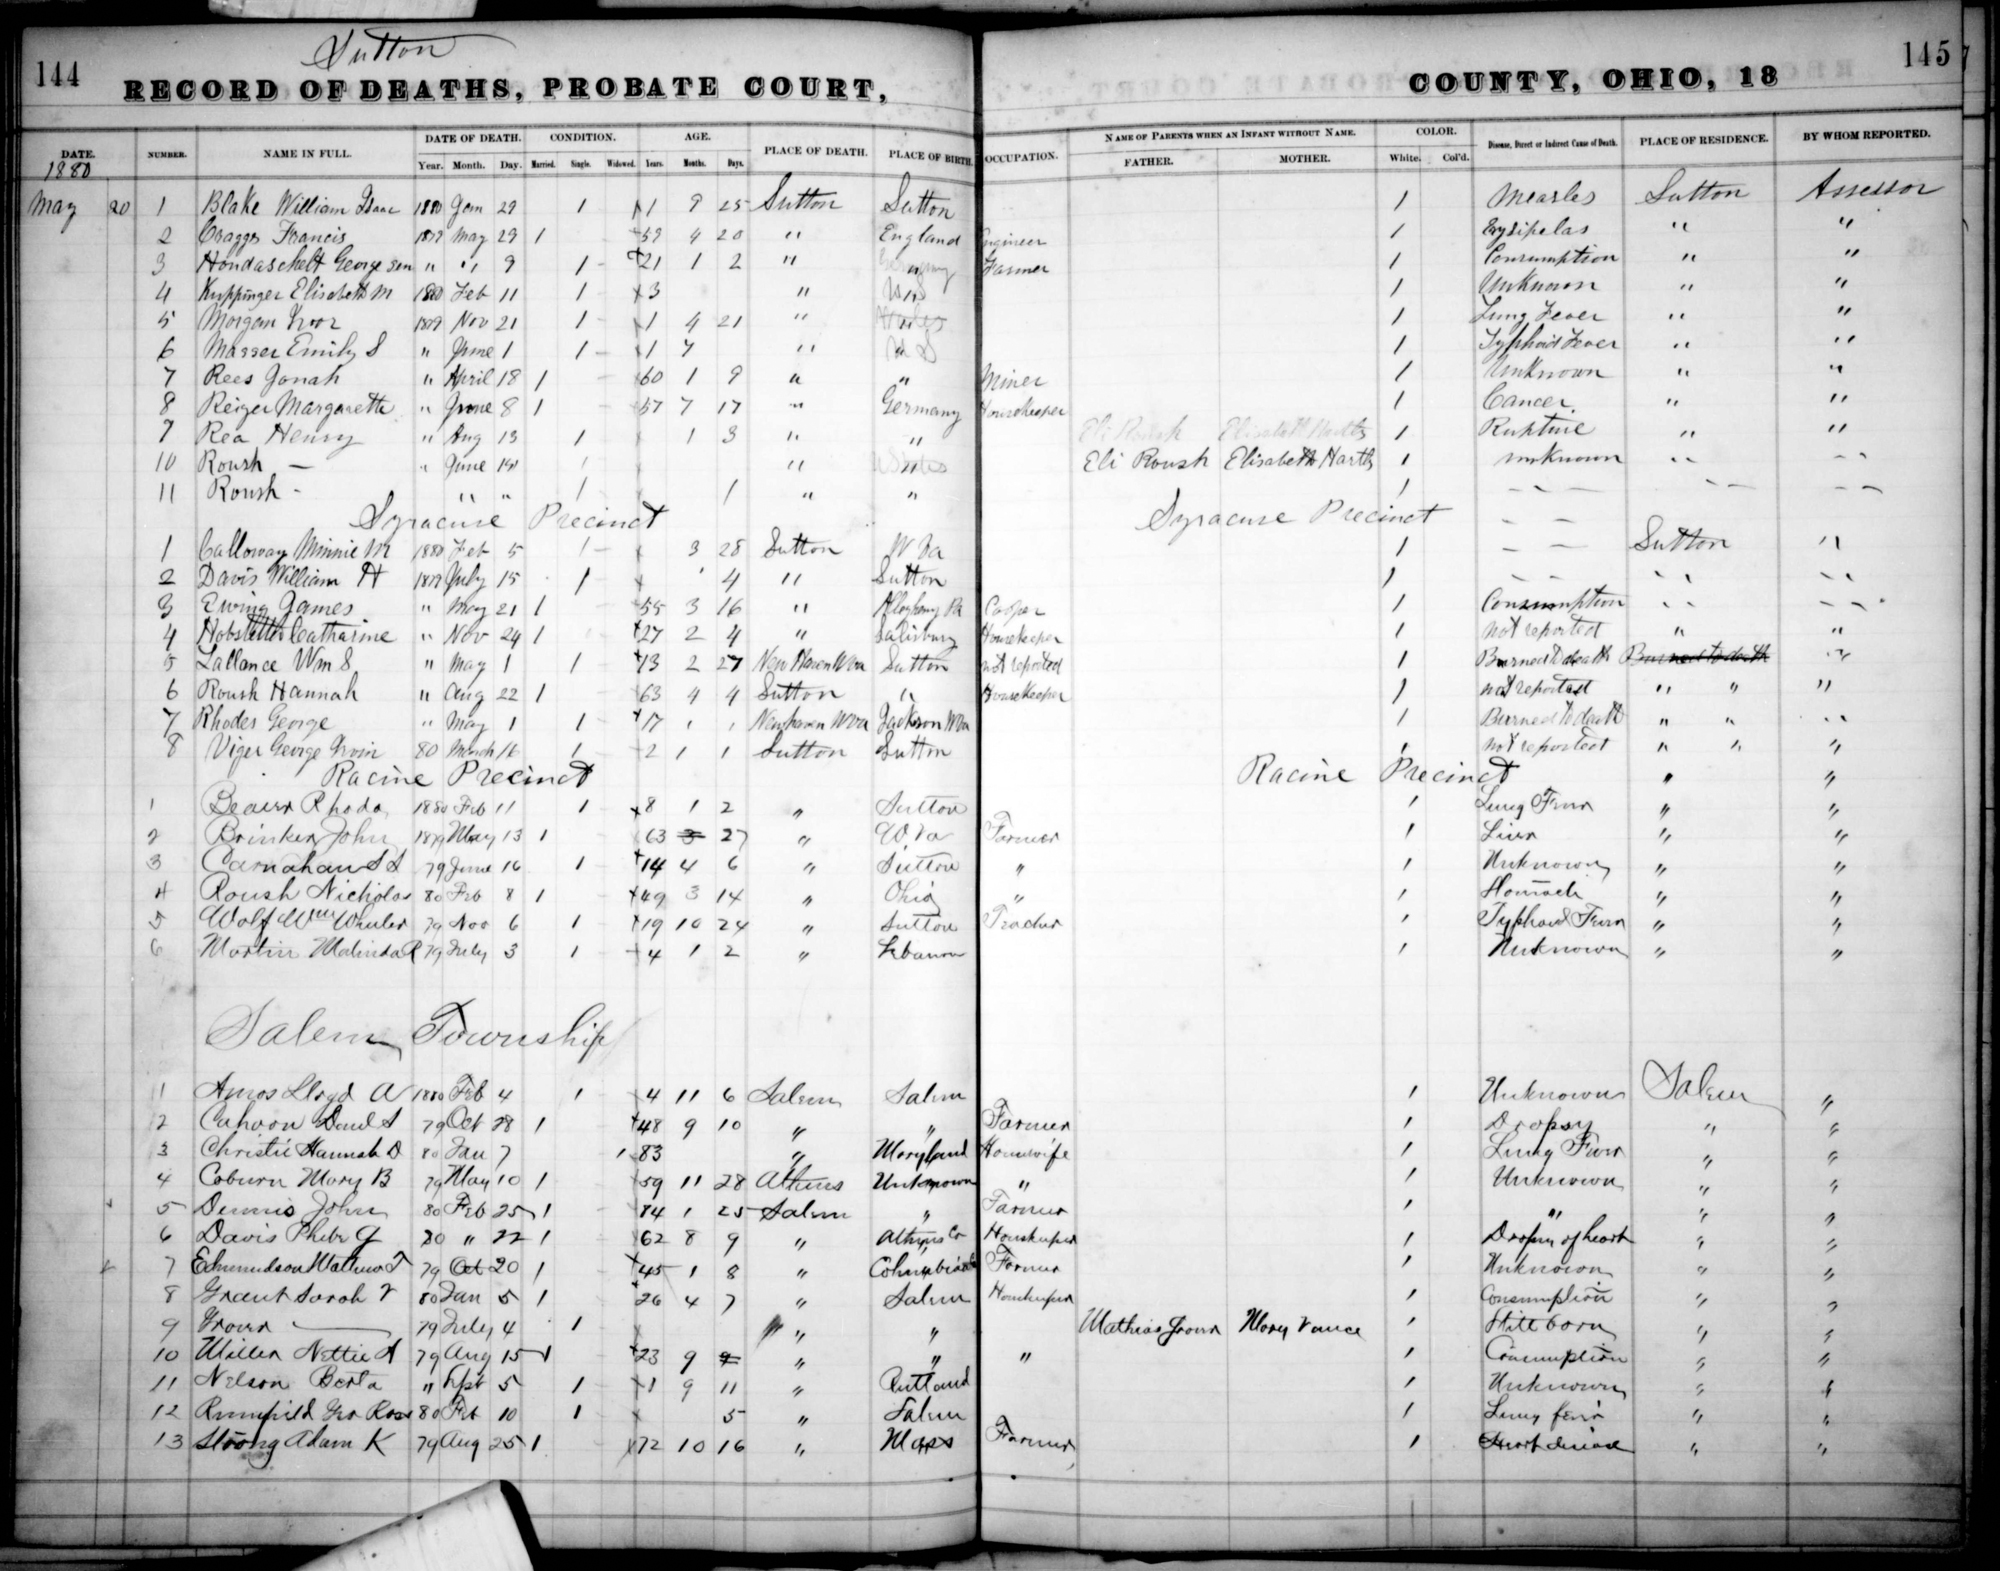 Sutton
144 RECORD OF DEATHS, PROBATE COURT, COUNTY, OHIO, 18 145
DATE. NUMBER. NAME IN FULL. DATE OF DEATH. CONDITION. AGE. PLACE OF DEATH. PLACE OF BIRTH. OCCUPATION. NAME OF PARENTS WHEN AN INFANT WITHOUT NAME. COLOR. Disease, Direct or Indirect Cause of Death. PLACE OF RESIDENCE. BY WHOM REPORTED.
Year. Month. Day. Married. Single. Widowed. Years. Months. Days. FATHER. MOTHER. White. Col'd.
1880
May 20 1 Blake William Isaac 1880 Jan 29 1 1 9 25 Sutton Sutton 1 Measles Sutton Assessor
2 Craggs Francis 1879 May 29 1 59 4 20 " England Engineer 1 Erysipelas " "
3 Hondaschelt George Sen " " 9 1 21 1 2 " Germany Farmer 1 Consumption " "
4 Kuppinger Elisabeth M 1880 Feb 11 1 3 " " 1 Unknown " "
5 Morgan 1879 Nov 21 1 1 4 21 " " 1 Lung Fever " "
6 Masser Emily S " June 1 1 1 7 " " 1 Typhoid Fever " "
7 Rees Jonah " April 18 1 60 1 9 " " Miner 1 Unknown " "
8 Reiger Margarette " June 8 1 57 7 17 " Germany Housekeeper 1 Cancer " "
7 Rea Henry " Aug 13 1 1 3 " " Eli Roush Elisabeth Hartly 1 Rupture " "
10 Roush — " June 1 " " Eli Roush Elisabeth Hartly 1 unknown " "
11 Roush - " " 1 1 " " 1 " " "
Syracuse Precinct Syracuse Precinct
1 Calloway Minnie M 1880 Feb 5 1 3 28 Sutton W Va 1 " Sutton "
2 Davis William H 1879 July 15 1 4 " Sutton 1 " " "
3 Ewing James " May 21 1 55 3 16 " Alleghany Pa Cooper 1 Consumption " "
4 Hobstetter Catharine " Nov 24 1 27 2 4 " Salisbury Housekeeper 1 not reported " "
5 Lallance Wm S " May 1 1 13 2 27 New Haven W Va Sutton not reported 1 Burned to death Burned to death "
6 Roush Hannah " Aug 22 1 63 4 4 Sutton " Housekeeper 1 not reported " " "
7 Rhodes George " May 1 1 17 1 1 Newhaven W Va Jackson W Va 1 Burned to death " " "
8 Viger George Irvin 80 March 16 1 2 1 1 Sutton Sutton 1 not reported " " "
Racine Precinct Racine Precinct " "
1 Beaver Rhoda 1880 Feb 11 1 8 1 2 " Sutton 1 Lung Fever " "
2 Brinker John 1879 May 13 1 63 3 27 " W Va Farmer 1 Liver " "
3 Carnahan S S 79 June 16 1 14 4 6 " Sutton " 1 Unknown " "
4 Roush Nicholas 80 Feb 8 1 49 3 14 " Ohio " 1 Stomach " "
5 Wolf Wm Wheeler 79 Nov 6 1 19 10 24 " Sutton Teacher 1 Typhoid Fever " "
6 Martin Malinda R 79 July 3 1 4 1 2 " Lebanon 1 Unknown " "
Salem Township
1 Amos Lloyd A 1880 Feb 4 1 4 11 6 Salem Salem 1 Unknown Salem "
2 Cahoon Danl S 79 Oct 28 1 48 9 10 " " Farmer 1 Dropsy " "
3 Christie Hannah D 80 Jan 7 1 83 " Maryland Housewife 1 Lung Fever " "
4 Coburn Mary B 79 May 10 1 59 11 28 Athens Unknown " 1 Unknown " "
5 Dennis John 80 Feb 25 1 84 1 25 Salem " Farmer 1 " " "
6 Davis Phebe G 80 " 22 1 62 8 9 " Athens Co Housekeeper 1 Dropsy of heart " "
7 Edmundson Mathew T 79 Oct 20 1 45 1 8 " Columbiana Farmer 1 Unknown " "
8 Grant Sarah V 80 Jan 5 1 26 4 7 " Salem Housekeeper 1 Consumption " "
9 Grover — 79 July 4 1 " " Mathias Grover Mary Vance 1 Still born " "
10 Miller Nettie A 79 Aug 15 1 23 9 " " " 1 Consumption " "
11 Nelson Berta " Sept 5 1 1 9 11 " Rutland 1 Unknown " "
12 Rumfield Geo Ross 80 Feb 10 1 5 " Salem 1 Lung fever " "
13 Strong Adam K 79 Aug 25 1 72 10 16 " Mass Farmer 1 Heart disease " "